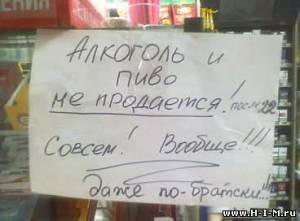 Алкоголь и
пиво
не продается! после 22
Совсем! Вообще!!!
даже по-братски...!
www.H-I-M.ru